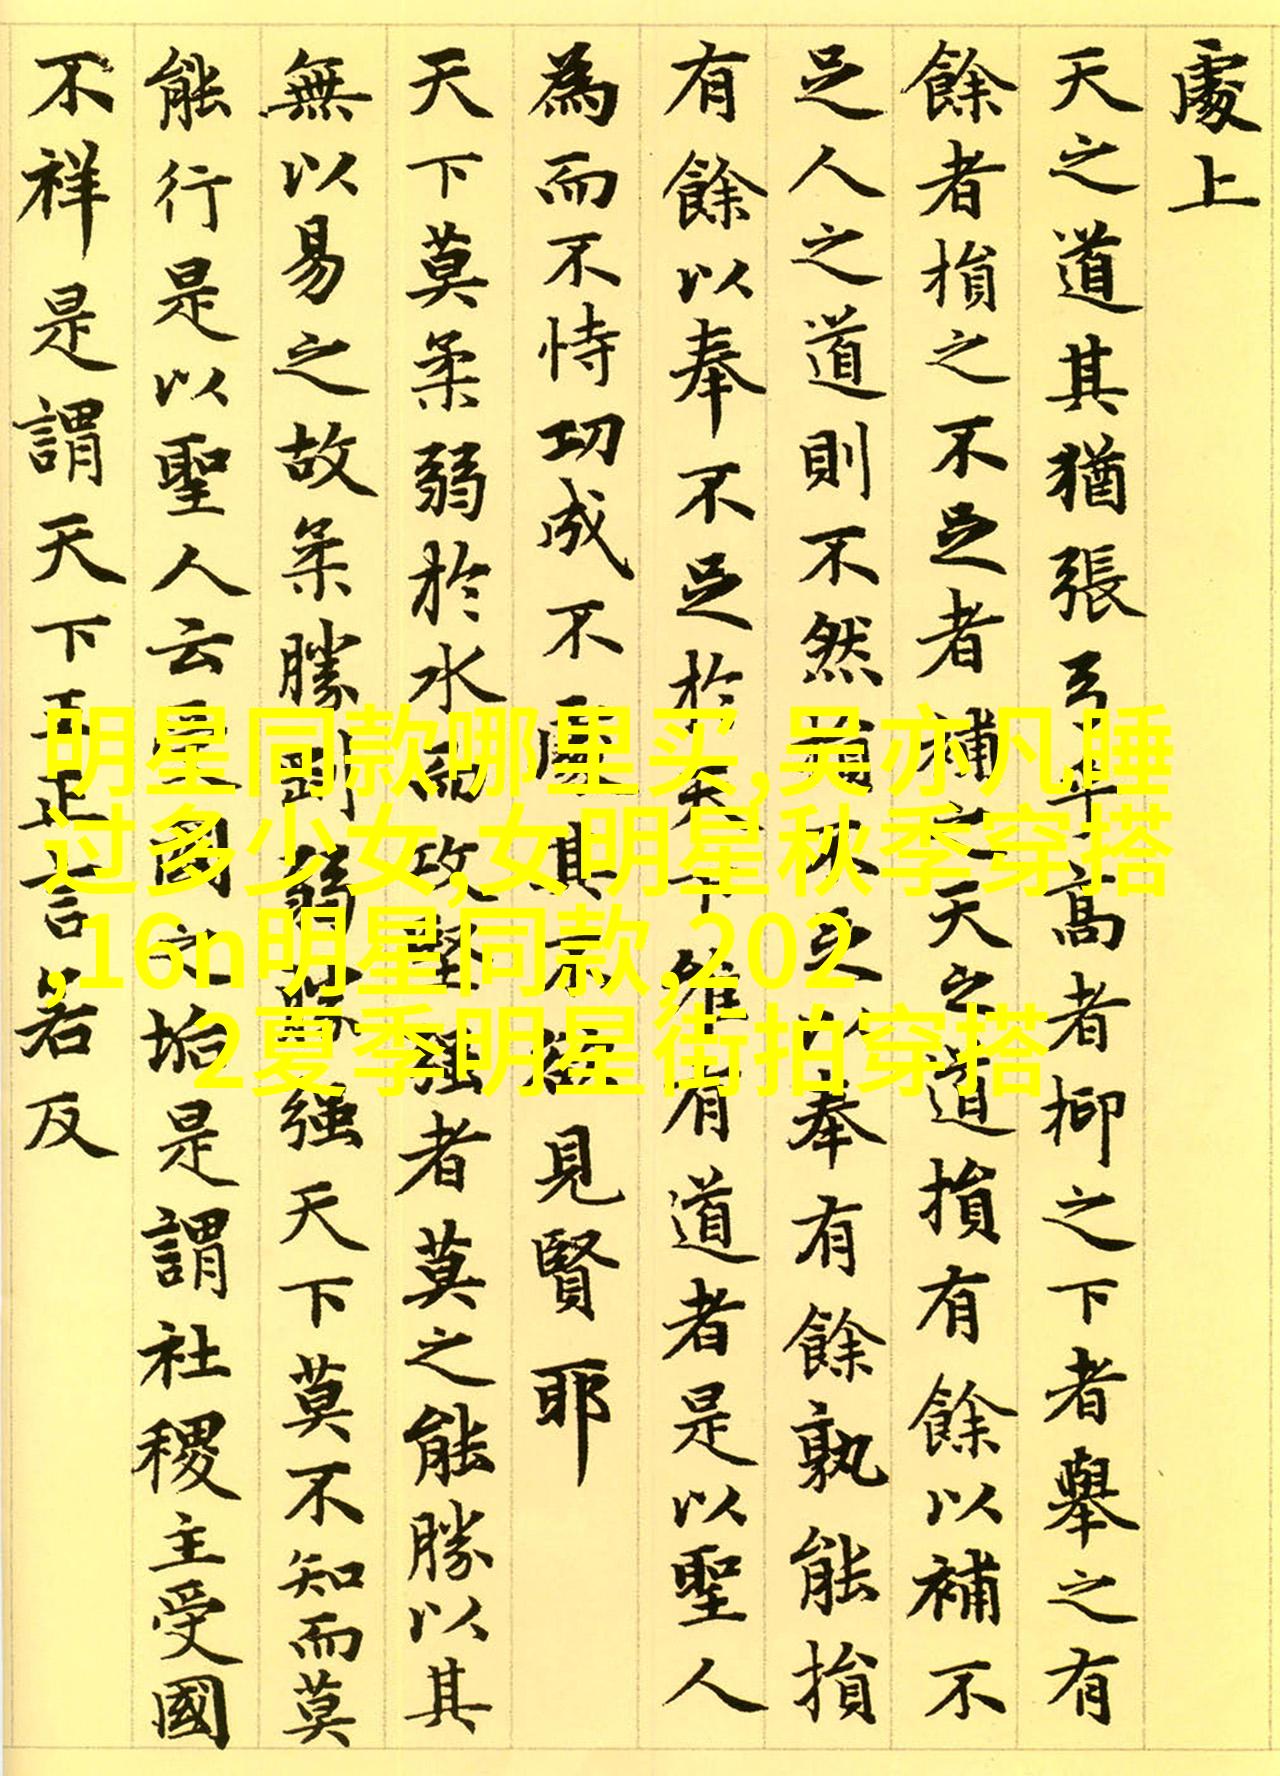 處上
天之道其猶張弓乎高者抑之下者舉之有
餘者損之不足者補之天之道損有餘以補不
足人之道則不然損不足以奉有餘孰能損
有餘以奉不足於天下唯有道者是以聖人
為而不恃功成不處其不欲見賢耶
天下莫柔弱於水而攻堅强者莫之能勝以其
無以易之故柔勝剛弱勝强天下莫不知而莫
能行是以聖人云受國之垢是謂社稷主受國
不祥是謂天下王正言若反
明星同款哪里买,吴亦凡睡
过多少女,女明星秋季穿搭
,16n明星同款,202
2夏季明星街拍穿搭